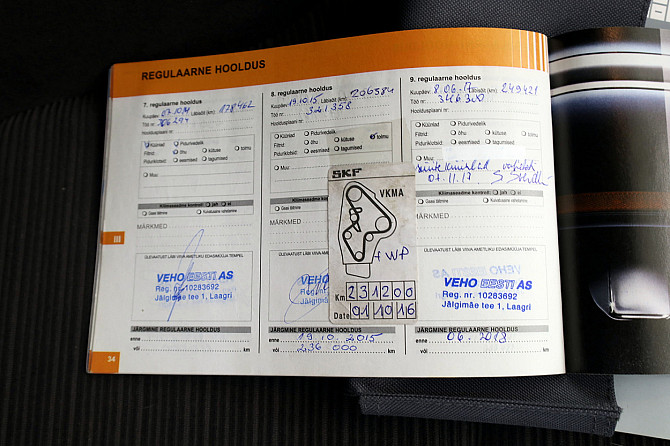 REGULAARNE HOOLDUS
7. regulaarne hooldus
Kuupäev: 07.10.14 Läbisõit (km): 178462
Töö nr: 306294
Hooldusplaani nr:
Küünlad Pidurivedelik
Filtrid: õhu kütuse tolmu
Piduriklotsid: eesmised tagumised
Muu:
Kliimaseadme kontroll: jah ei
Gaasi täitmine Kuivatuselemendi vahetamine
MÄRKMED
ÜLEVAATUST LÄBI VIINA AMETLIKU EDASIMÜÜJA TEMPEL
VEHO EESTI AS
Reg. nr. 10283692
Jälgimäe tee 1, Laagri
JÄRGMINE REGULAARNE HOOLDUS
enne
või km
34
III
8. regulaarne hooldus
Kuupäev: 19.10.15 Läbisõit (km): 206584
Töö nr: 321358
Hooldusplaani nr:
Küünlad Pidurivedelik
Filtrid: õhu kütuse tolmu
Piduriklotsid: eesmised tagumised
Muu:
Gaasi täitmine
MÄRKMED
VEHO
Reg. nr.
Jälgimäe
JÄRGMINE REGULAARNE HOOLDUS
enne 19.10.2015
või 236 000 km
SKF
VKMA
+ WP
Km 231200
Date 011016
9. regulaarne hooldus
Kuupäev: 8.06.17 Läbisõit (km): 249421
Töö nr: 346300
Hooldusplaani nr:
Küünlad Pidurivedelik
Filtrid: õhu kütuse tolmu
Piduriklotsid: eesmised tagumised
Muu: süüte küünlad vahetati
07.11.17
Kliimaseadme kontroll: jah ei
Gaasi täitmine Kuivatuselemendi vahetamine
MÄRKMED
VEHO EESTI AS
Reg. nr. 10283692
Jälgimäe tee 1, Laagri
JÄRGMINE REGULAARNE HOOLDUS
enne 06.2018
või km